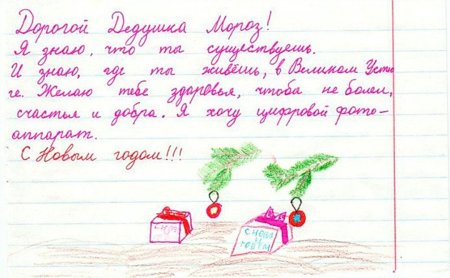 Дорогой Дедушка Мороз!
Я знаю, что ты существуешь.
И знаю, где ты живёшь, в Великом Устю
ге. Желаю тебе здоровья, чтоба не болел,
счастья и добра. Я хочу цифровой фото-
аппарат.
С Новым годом!!!
С НОВЫ
годом